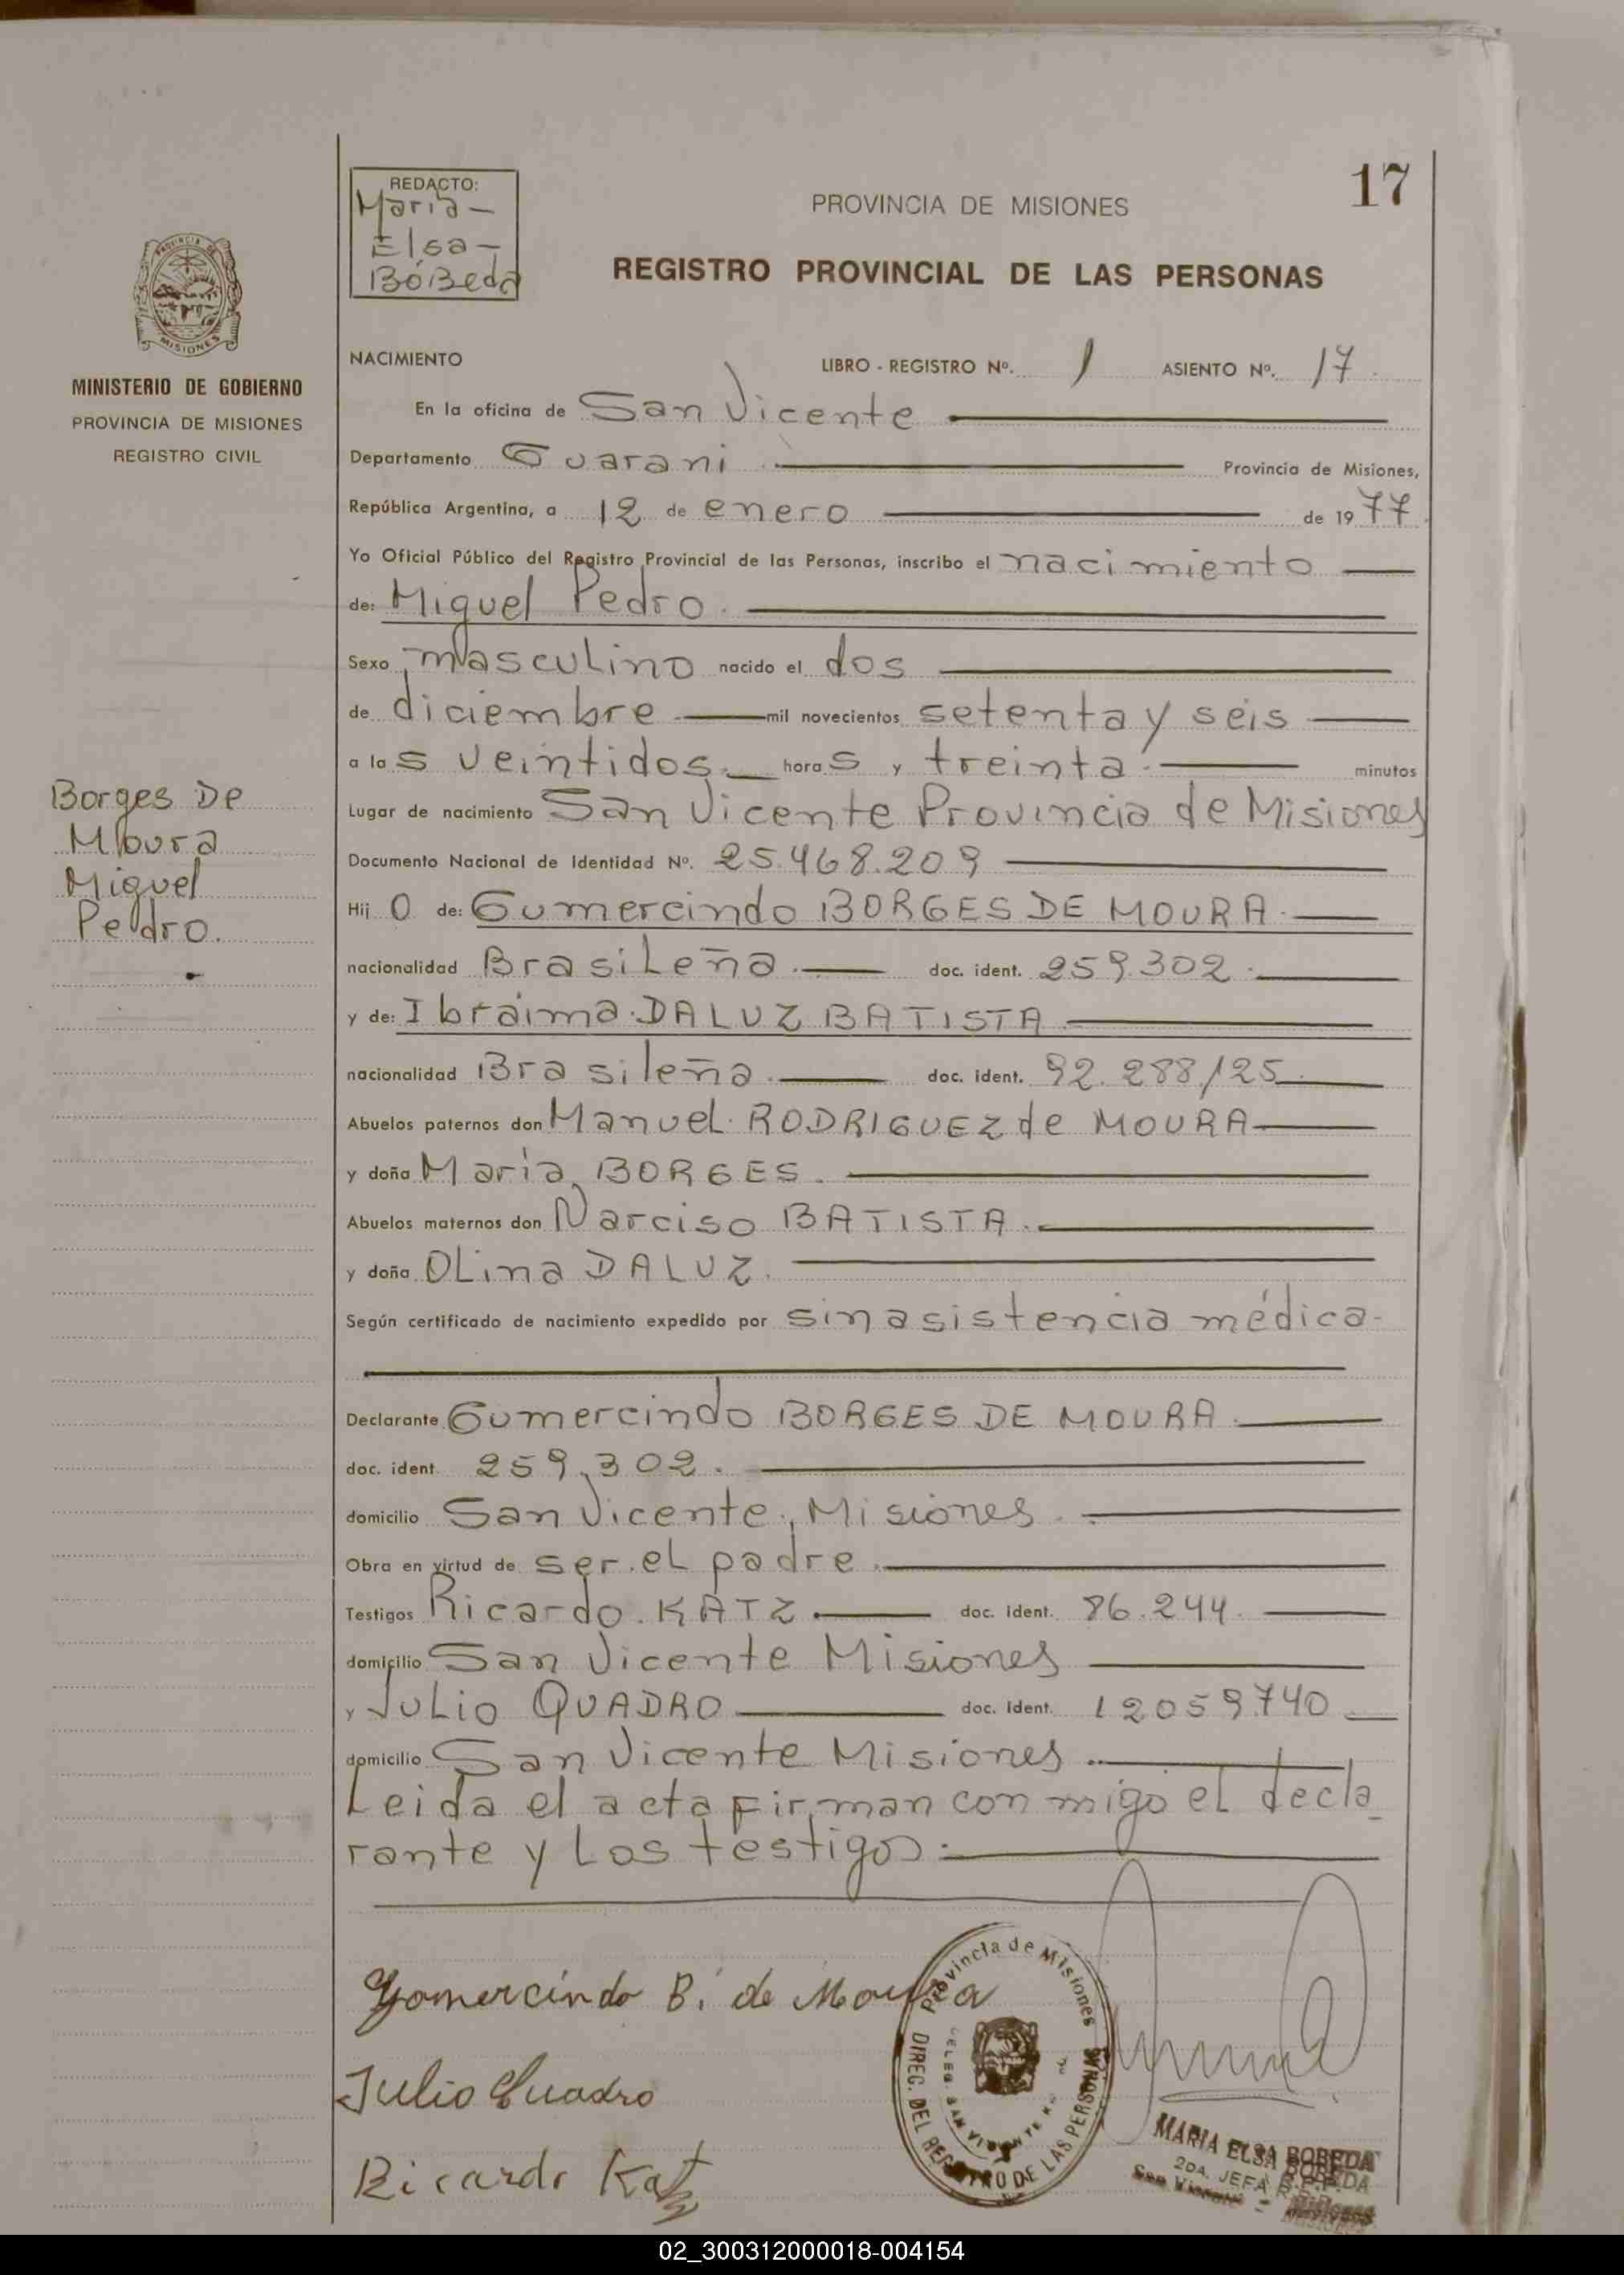 17
REDACTO:
Maria -
Elsa -
BóBeda
PROVINCIA DE MISIONES
REGISTRO PROVINCIAL DE LAS PERSONAS
PROVINCIA DE
MISIONES
MINISTERIO DE GOBIERNO
PROVINCIA DE MISIONES
REGISTRO CIVIL
NACIMIENTO LIBRO - REGISTRO Nº. 1 ASIENTO Nº. 17.
En la oficina de San Vicente
Departamento Guarani Provincia de Misiones,
República Argentina, a 12 de enero de 1977.
Yo Oficial Público del Registro Provincial de las Personas, inscribo el nacimiento
de: Miguel Pedro.
Sexo masculino nacido el dos
de diciembre mil novecientos setenta y seis
a las veintidos. horas y treinta. minutos
Lugar de nacimiento San Vicente Provincia de Misiones
Documento Nacional de Identidad Nº. 25.468.209
Hijo de: Gumercindo BORGES DE MOURA.
nacionalidad Brasileña. doc. ident. 259.302.
y de: Ibraima. DALUZ BATISTA
nacionalidad Brasileña. doc. ident. 92.288/25
Abuelos paternos don Manuel. RODRIGUEZ de MOURA
y doña Maria BORGES.
Abuelos maternos don Narciso BATISTA.
y doña OLina DALUZ.
Según certificado de nacimiento expedido por sin asistencia médica-
Declarante Gumercindo BORGES DE MOURA.
doc. ident. 259.302.
domicilio San Vicente, Misiones.
Obra en virtud de ser el padre.
Testigos Ricardo. KATZ doc. ident. 86.244.
domicilio San Vicente Misiones
y JuLio QUADRO doc. ident. 12059.740
domicilio San Vicente Misiones
Leida el acta Firman con migo el decla
rante y Los testigos.
Borges De
Moura
Miguel
Pedro.
Gomercindo B. de Moura
Julio Cuadro
Ricardo Katz
Provincia de Misiones
DIREC. DEL REGISTRO DE LAS PERSONAS
DELEG. SAN VICENTE
MARIA ELSA BOBEDA
2DA. JEFA R.P.P.
San Vicente - Misiones
02_300312000018-004154